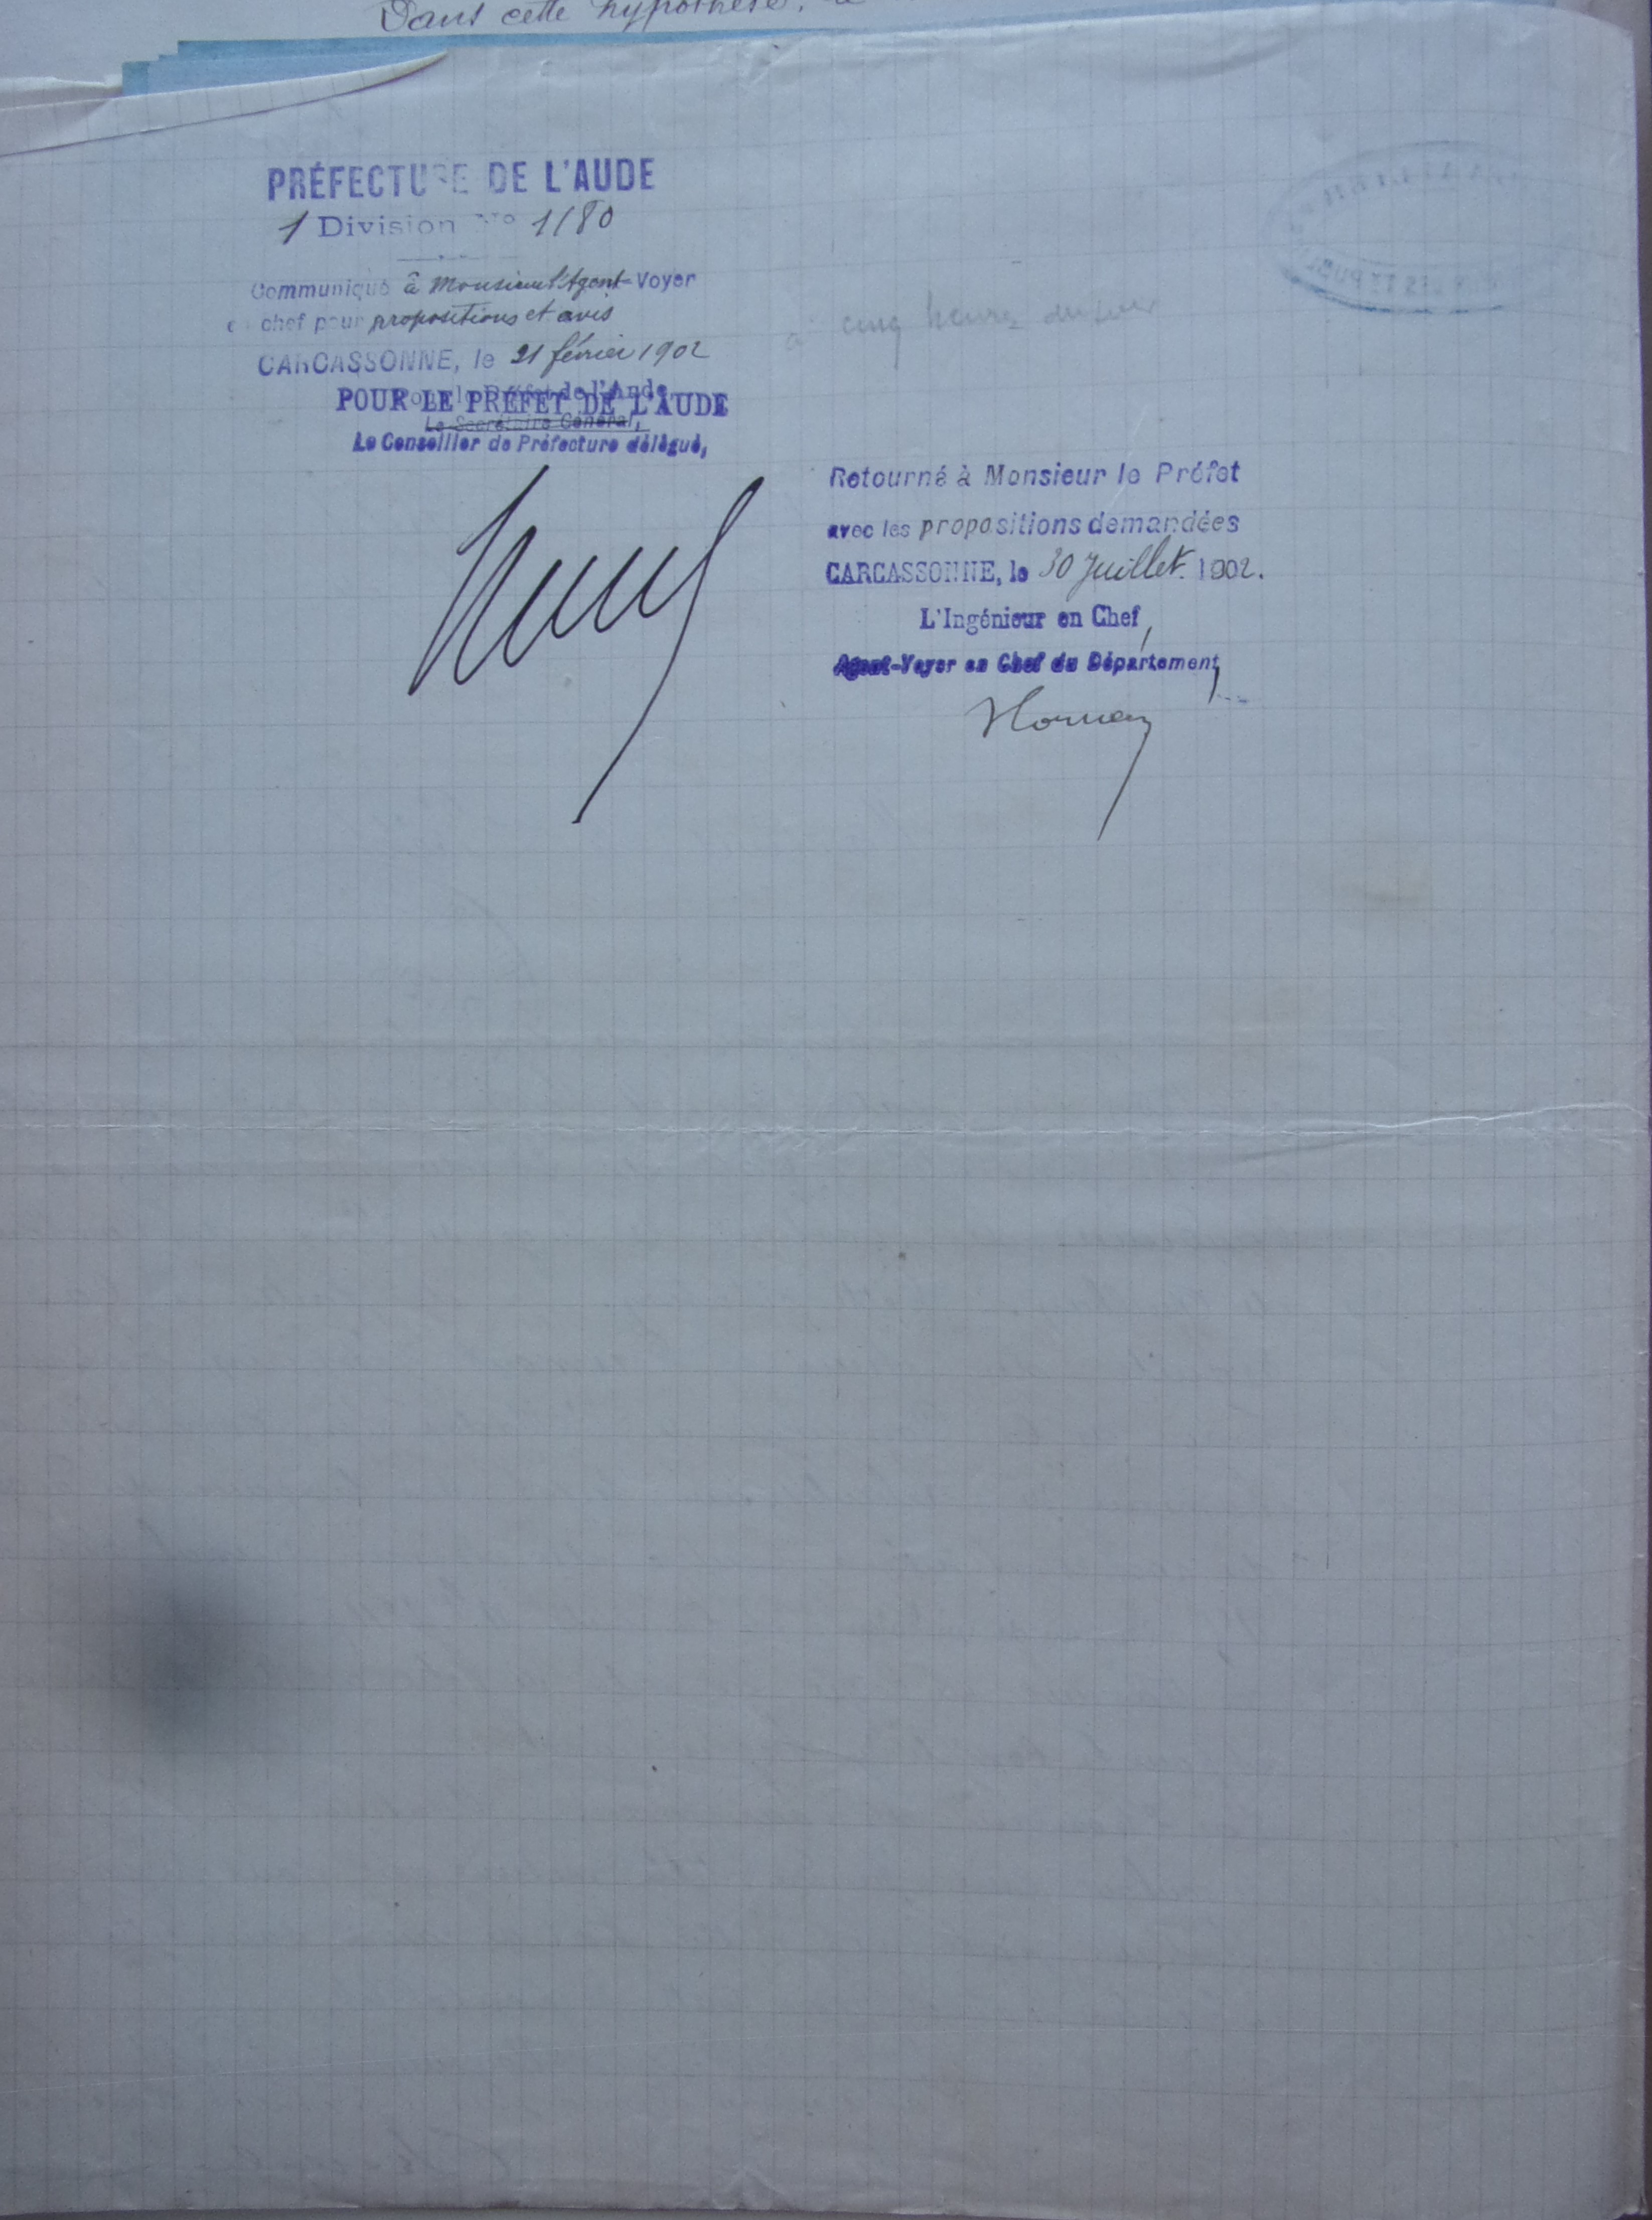 Dans cette hypothèse,
PRÉFECTURE DE L'AUDE
1 Division No 1180
Communiqué à Monsieur l'Agent-Voyer
en chef pour propositions et avis
CARCASSONNE, le 21 février 1902
Pour le Préfet de l'Aude
POUR LE PRÉFET DE L'AUDE
Le Secrétaire Général,
Le Conseiller de Préfecture délégué,
à cinq heures du soir
Retourné à Monsieur le Préfet
avec les propositions demandées
CARCASSONNE, le 30 Juillet. 1902.
L'Ingénieur en Chef,
Agent-Voyer en Chef du Département,